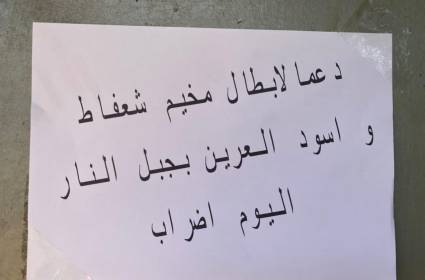 دعما لابطال مخيم شعفاط
و اسود العرين بجبل النار
اليوم اضراب